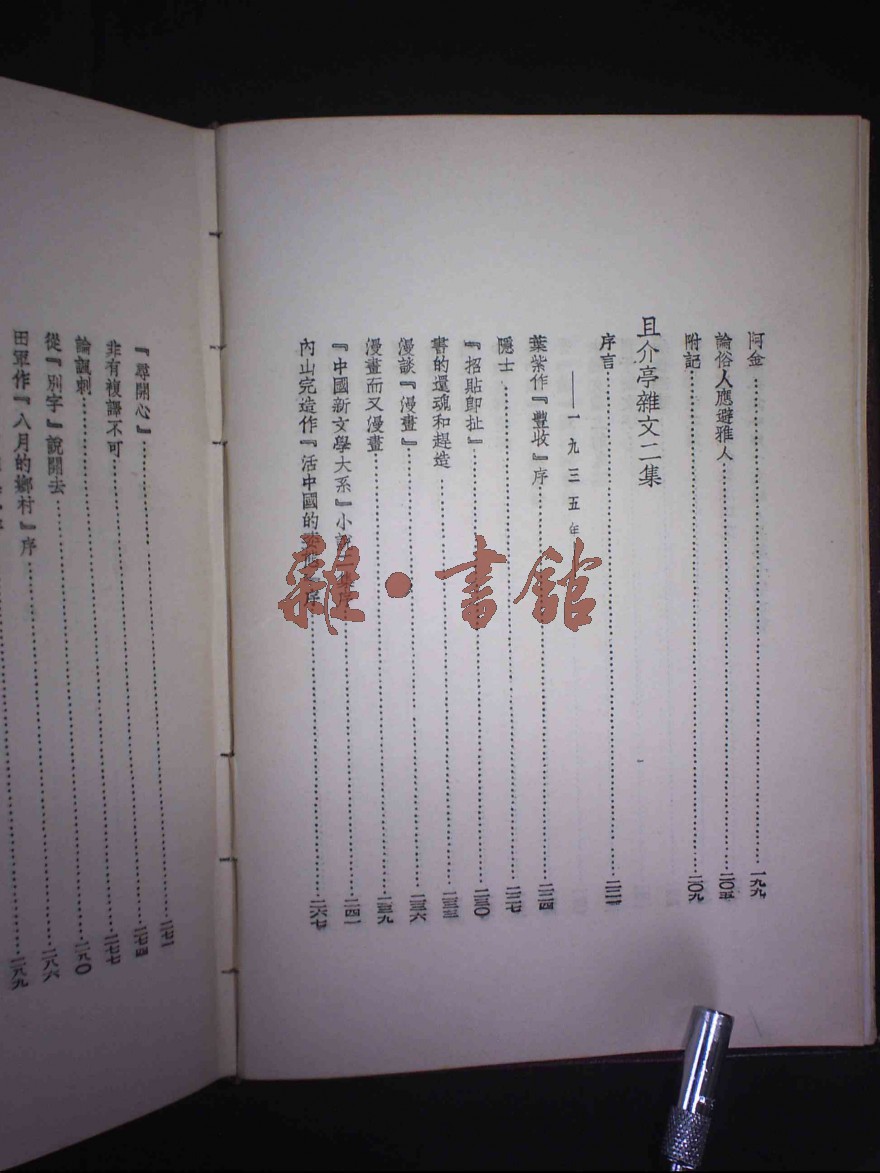 阿金……一九九
論俗人應避雅人……二〇五
附記……二〇九
且介亭雜文二集
序言……二二一
——一九三五年
葉紫作『豐收』序……二二四
隱士……二二七
『招貼即扯』……二三〇
書的還魂和趕造……二三三
漫談『漫畫』……二三六
漫畫而又漫畫……二三九
『中國新文學大系』小說……二四一
內山完造作『活中國的……序……二六七
『尋開心』……二七一
非有複譯不可……二七四
論諷刺……二七七
從『別字』說開去……二八〇
田軍作『八月的鄉村』序……二八六
二八九
雜·書館